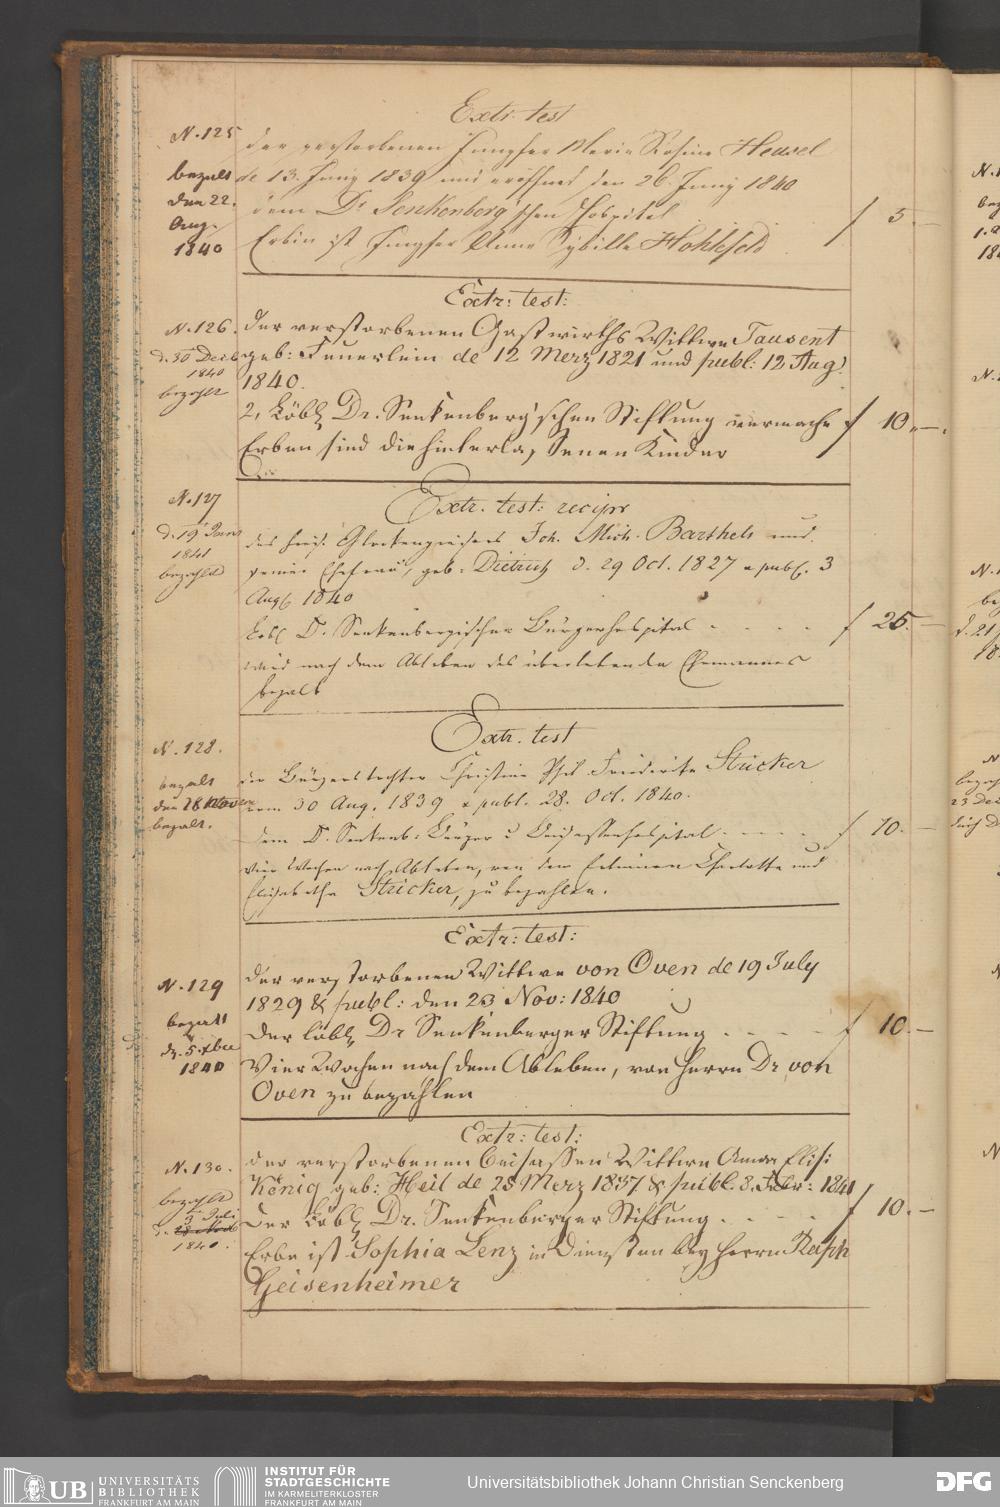 Extr. test
N. 125
der verstorbenen Jungfer Maria Rosina Heusel
bezalt
de 13. Juny 1839 und eröffnet den 26. Juny 1840
den 22.
Aug.
1840
dem Dr Senkenberg'schen Hospital f 5.—
Erbin ist Jungfer Anna Sybilla Hohlefeld
Extr: test:
N. 126.
der verstorbenen Gastwirths Wittwe Tausent
d. 30 Decb
1840
bezahlt
geb: Feuerlein de 12 Merz 1821 und publ: 12 Aug.
1840.
2, Löbl Dr. Senkenberg'schen Stiftung vermache f 10.—.
Erben sind die hinterlassenen Kinder
Extr. test: recipr
N. 127
d. 19 Janr
1841
bezahlt
des Glockengiesers Joh. Mich. Barthels und
seiner Ehefrau, geb. Dietrich d. 29 Oct. 1827 & publ. 3
Aug. 1840
Löbl D. Senkenbergischen Bürgerhospital f 25.—
wird nach dem Ableben des überlebenden Ehemannes
bezalt
Extr. test
N. 128.
bezalt
den 28 Novem
bezalt.
der Bürgerstochter Christine Phil Friederike Stricker
vom 30 Aug. 1839 & publ. 28. Oct. 1840.
dem D. Senkenb: Bürger u Beisassenhospital f 10.—
vier Wochen nach Ableben, von den Erbinnen Charlotte und
Elisabetha Stricker, zu bezahlen.
Extr: test:
N. 129
der verstorbenen Wittwe von Oven de 19 July
1829 & publ: den 23 Nov: 1840
bezalt
d. 5. Xber
1840
Der löbl Dr Senkenberger Stiftung f 10.—
Vier Wochen nach dem Ableben, von Herrn Dr von
Oven zu bezahlen
Extr: test:
N. 130.
der verstorbenen Beisassen Wittwe Anna Elis:
König geb: Heil de 28 Merz 1837 & publ. 8. Febr: 1841
bezahlt
3 Juli
1840.
Der Löbl Dr. Senkenberger Stiftung f 10.—
Erbe ist Sophia Lenz in Diensten bey Herrn Raph
Geisenheimer
UB
UNIVERSITÄTS
BIBLIOTHEK
FRANKFURT AM MAIN
INSTITUT FÜR
STADTGESCHICHTE
IM KARMELITERKLOSTER
FRANKFURT AM MAIN
Universitätsbibliothek Johann Christian Senckenberg
DFG